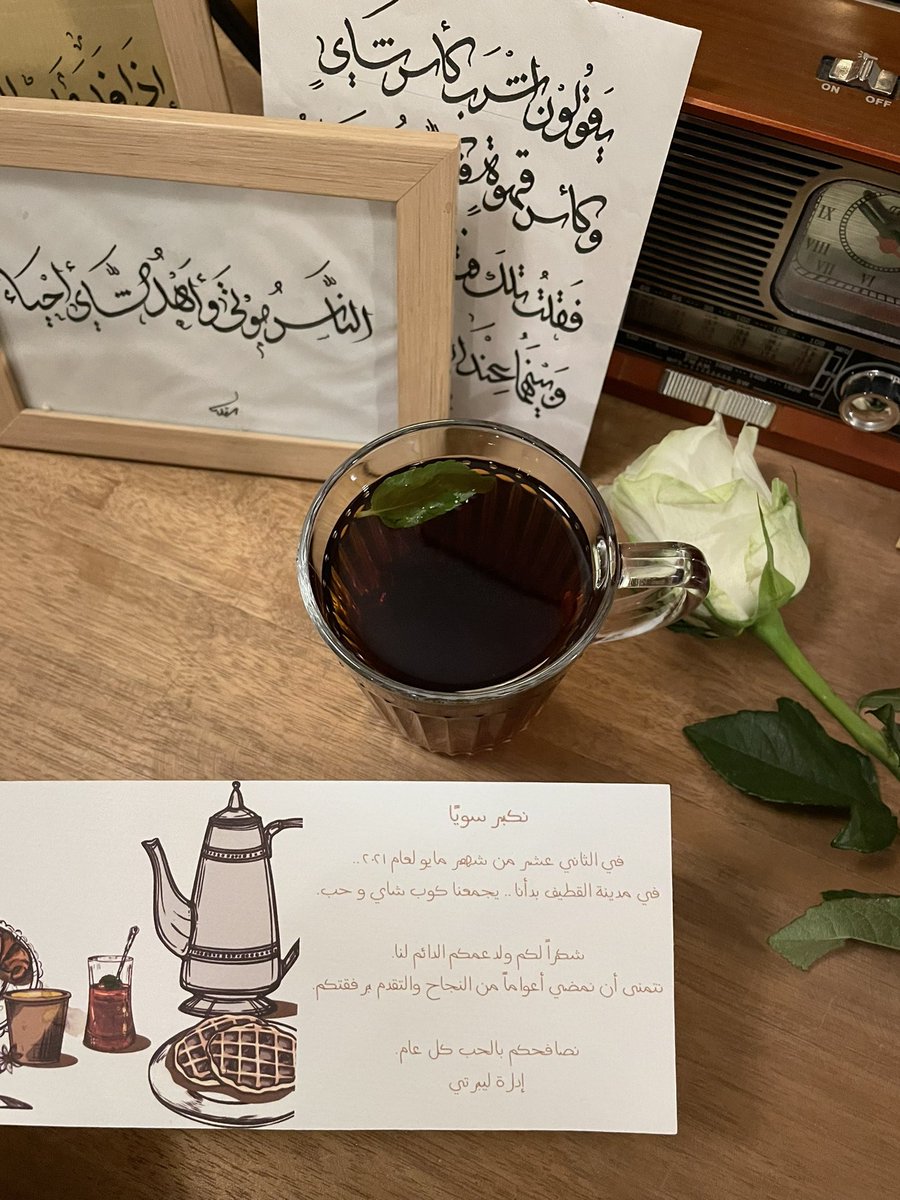 إذا
يَقُولُونَ اشْرَبْ كَأْسَ شَايٍ
وكأسَ قهوةٍ
فَقُلْتُ تِلْكَ
وَبَيْنَهُمَا عِنْدَ
النَّاسُ مَوْتَى وَأَهْلُ الشَّايِ أَحْيَاءُ
ON OFF
IX
VIII
VII
VI
نكبر سويًا
في الثاني عشر من شهر مايو لعام ٢٠٢١..
في مدينة القطيف بدأنا .. يجمعنا كوب شاي و حب.
شكراً لكم ولدعمكم الدائم لنا.
نتمنى أن نمضي أعواماً من النجاح والتقدم برفقتكم.
نصافحكم بالحب كل عام.
إدارة ليبرتي